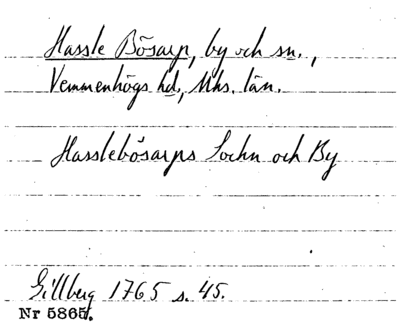 Hassle Bösarp, by och sn.,
Vemmenhögs hd., Mhs. län.
Hasslebösarps Sochn och By
Gillberg 1765 s. 45.
Nr 5865.